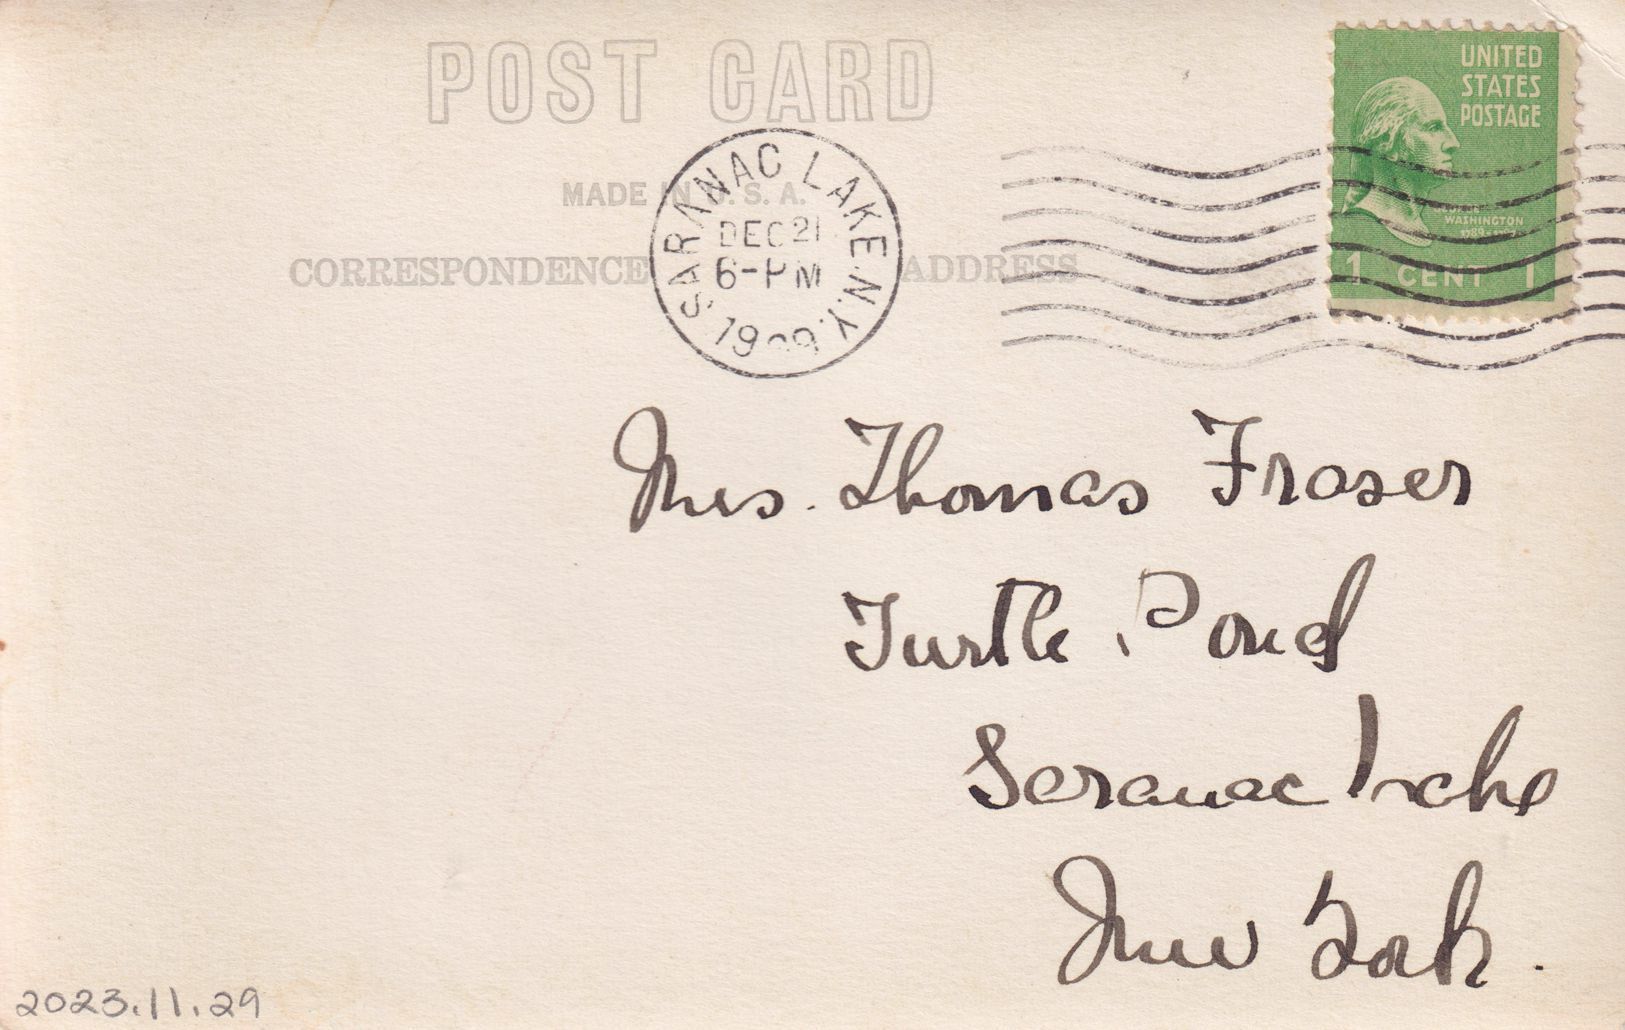 POST CARD
UNITED
STATES
POSTAGE
GEORGE
WASHINGTON
1 CENT 1
MADE IN U.S.A.
SARANAC LAKE. N.Y.
DEC 21
6-PM
CORRESPONDENCE ADDRESS
Mrs. Thomas Fraser
Turtle Pond
Saranac Lake
New York.
2023.11.29